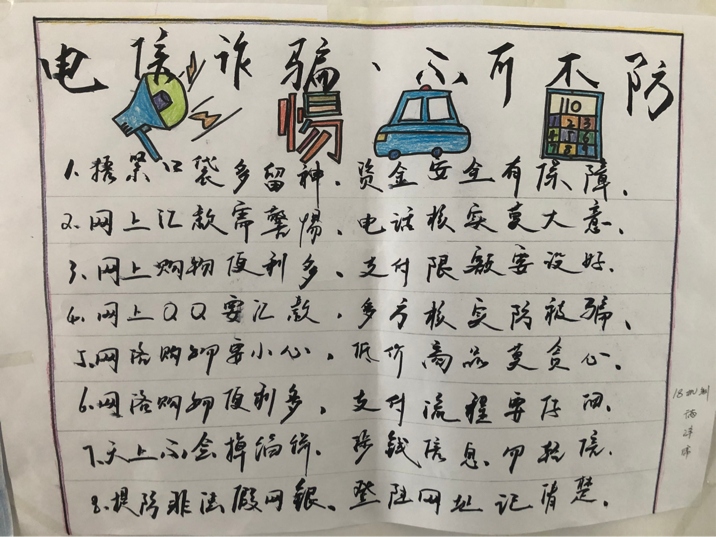 电信诈骗、不可不防
惕
110
1 2 3
4 5 6
7 8 9
1、捂紧口袋多留神、资金安全有保障、
2、网上汇款需警惕、电话核实莫大意、
3、网上购物便利多、支付限额要设好、
4、网上QQ要汇款、多方核实防被骗、
5、网络购物要小心、低价商品莫贪心、
6、网络购物便利多、支付流程要仔细、
7、天上不会掉馅饼、涉钱信息、勿轻信、
8、提防非法假网银、登陆网址记清楚、